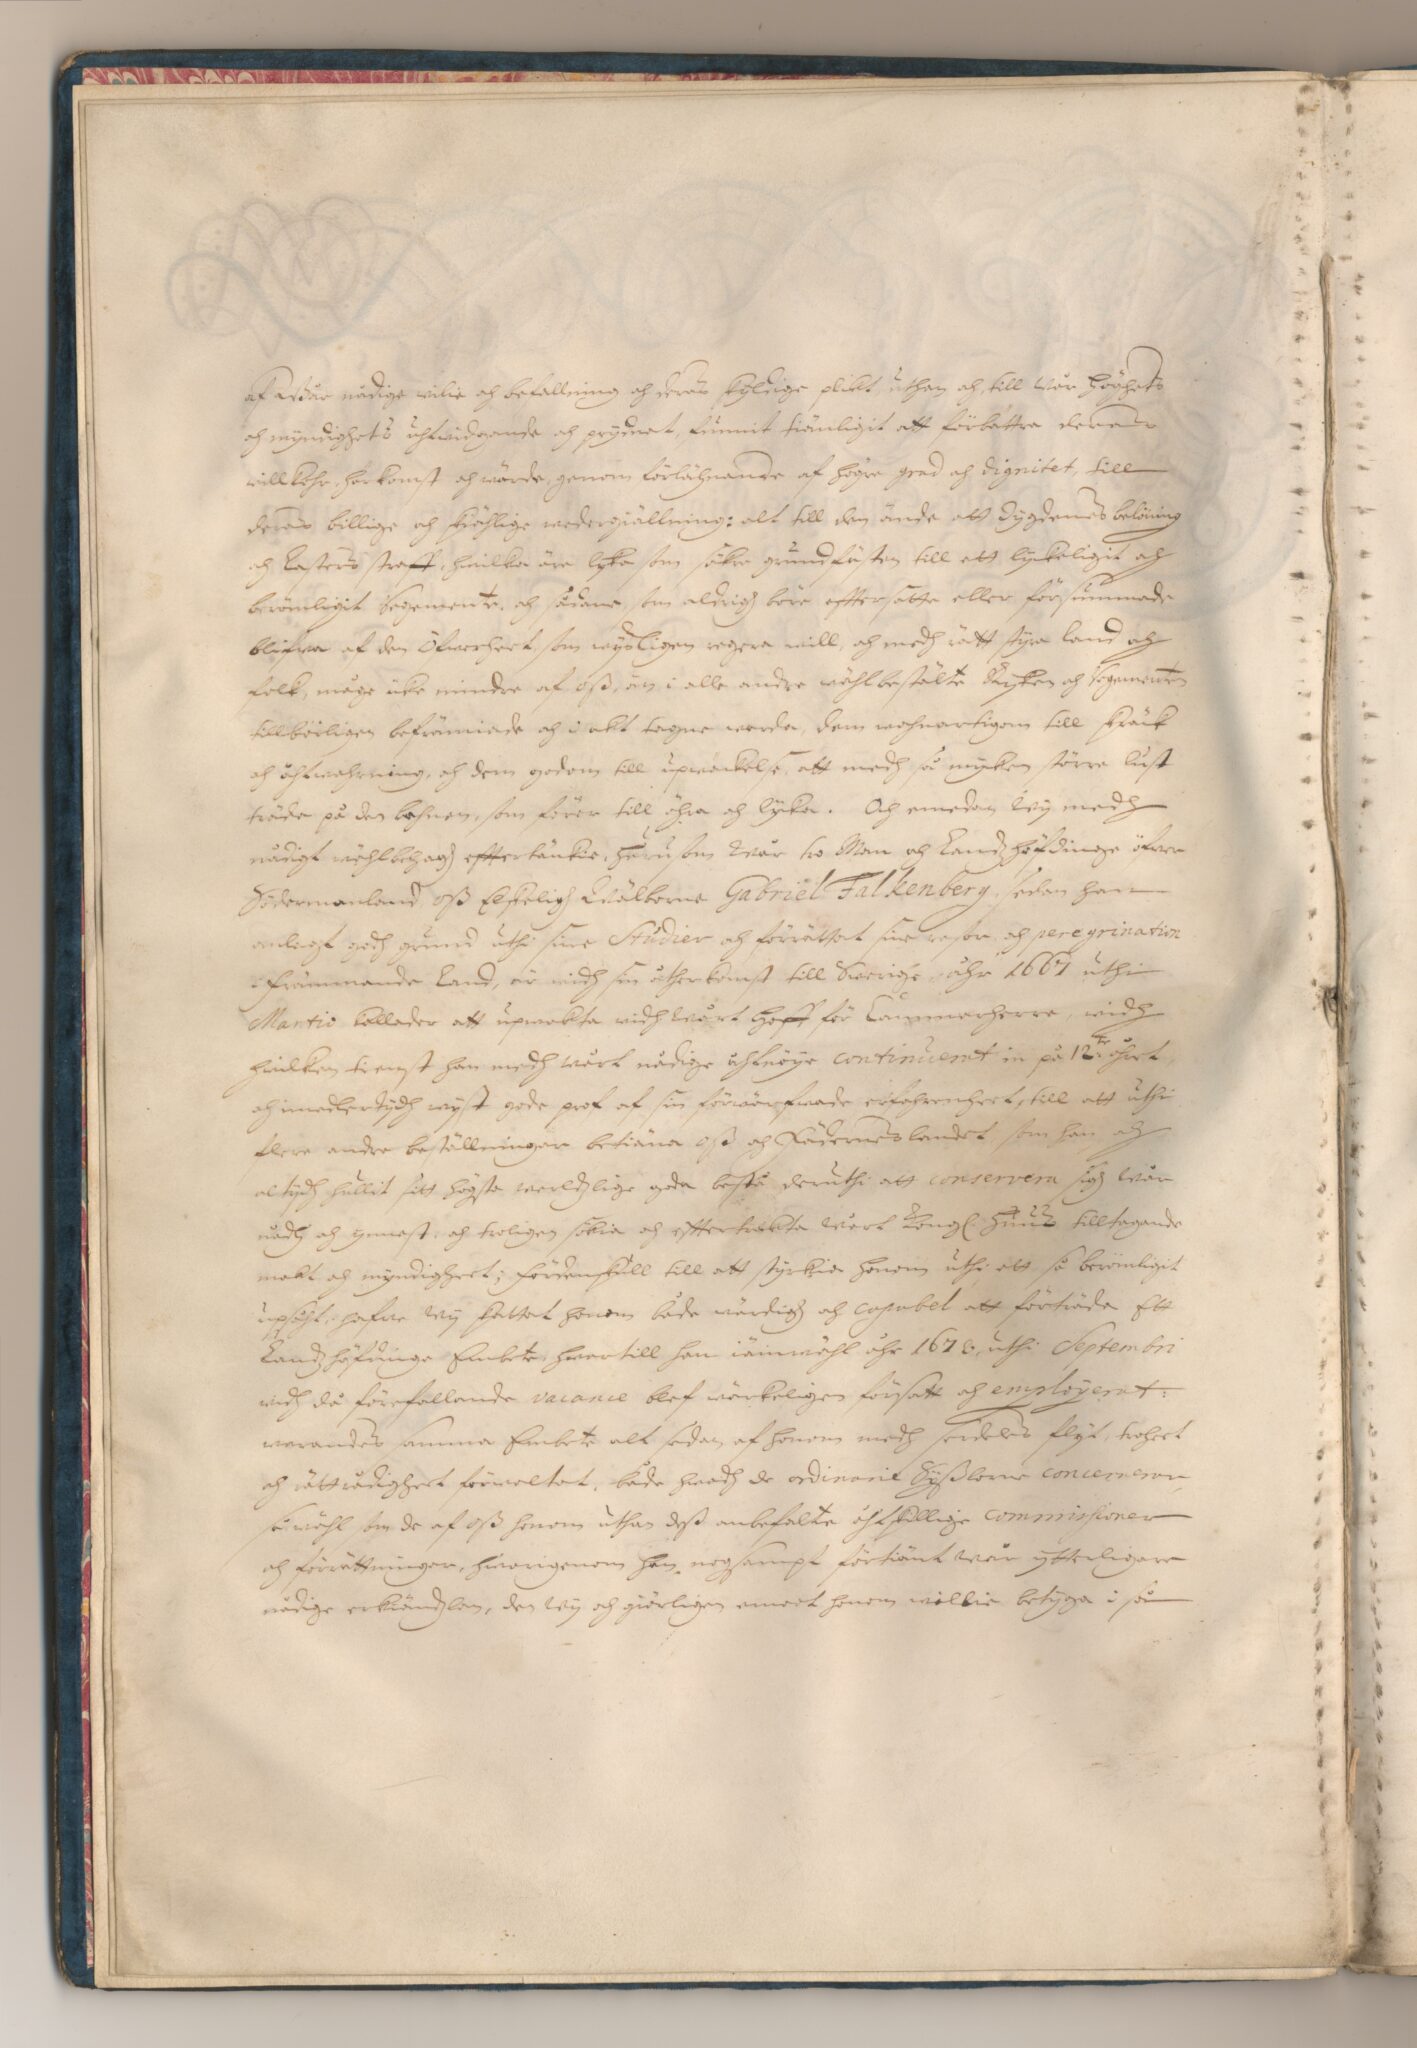 af wår nådige wilie och befallning och deras skyldige plikt, uthan och till wår Höghets
och myndighets uhtvidgande och prydnat, funnit tienligit att förbättra deras
willkohr, herkomst och wärde, genom förlähnande af högre grad och dignitet, till
deras billige och skiählige wedergiällning: alt till den ände att dygdenes belöning
och Lasters straff, hwilka äre lyka som säkra grundfästen till ett lyckeligit och
berömligit Regemente, och sådane, som aldrig böre efftersatte eller försummade
blifwa af den Öfwerhet, som wysligen regera will, och medh rätt styra Land och
folk, måge icke mindre af oss, än i alle andre wählbestälte Ryken och Regementen
tillbörligen befrämiade och i akt tagne warda, dem wahnartigom till skräck
och åhtwahrning, och dem godom till upweckelse, att medh så mycken större lust
träda på den bahnen, som förer till ähra och lycka. Och emedan Wy medh
nådigt wählbehag efftertänkie, huru som Wår tro Man och Landzhöfdinge öfwer
Södermanland, oss Elskelig Wälborne Gabriel Falkenberg, sedan han
anlagt godh grund uthi sine Studier och förrättat sine resor och peregrination
i främmande Land, är widh sin återkomst till Swerige, åhr 1667 uthi
Martio kallader att upwakta widh wårt Hoff för Cammarherre, widh
hwilken tienst han medh wårt nådige åhtnöye continuerat in på 12te åhret,
och imedlertydh wyst gode prof af sin förwärfwade erfahrenhet, till att uthi
flere andre beställningar betiäna oss och Fäderneslandet, som han och
altydh hullit sitt högsta werldzlige goda bestå deruthi att conservera sigh Wår
nådh och ynnest, och troligen sökia och effterträkta Wårt Kongl. Huus tilltagande
makt och myndighet; fördenskull till att styrkia honom uthi ett så berömligit
upsåht, hafwe Wy skattat honom både wärdig och capabel att förträda Ett
Landzhöfdinge Embete, hwartill han iämwähl åhr 1678, uthi Septembri
widh då förefallande vacance blef wärkeligen försatt och employerat:
warandes samma Embete alt sedan af honom medh serdeles flyt, trohet
och rättrådighet förwaltat, både hwadh de ordinarie Sysslorne concernerar,
såwähl som de af oss honom uthan dess anbefalte åhtskillige commissioner
och förrättningar, hwarigenom han nogsampt förtiänt wår ytterligare
nådige erkiändzlan, den Wy och giärligen emoot honom willie betyga i så